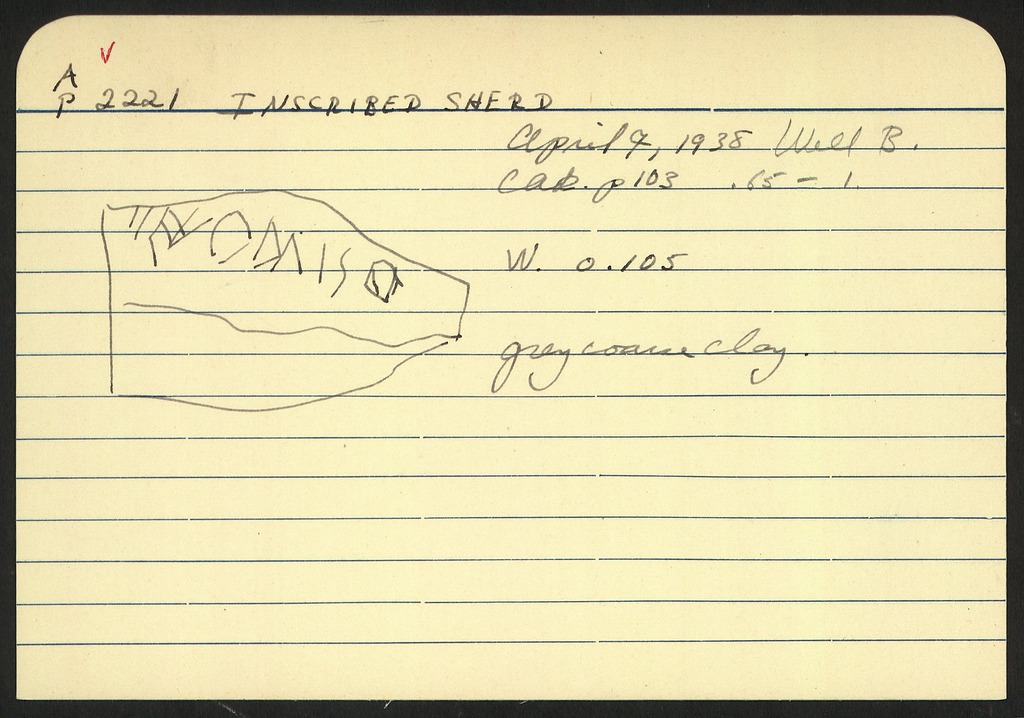 V
A
P 2221 INSCRIBED SHERD
April 7, 1938 Well B.
Cab. p 103 .65 - 1.
W. 0.105
grey coarse clay.